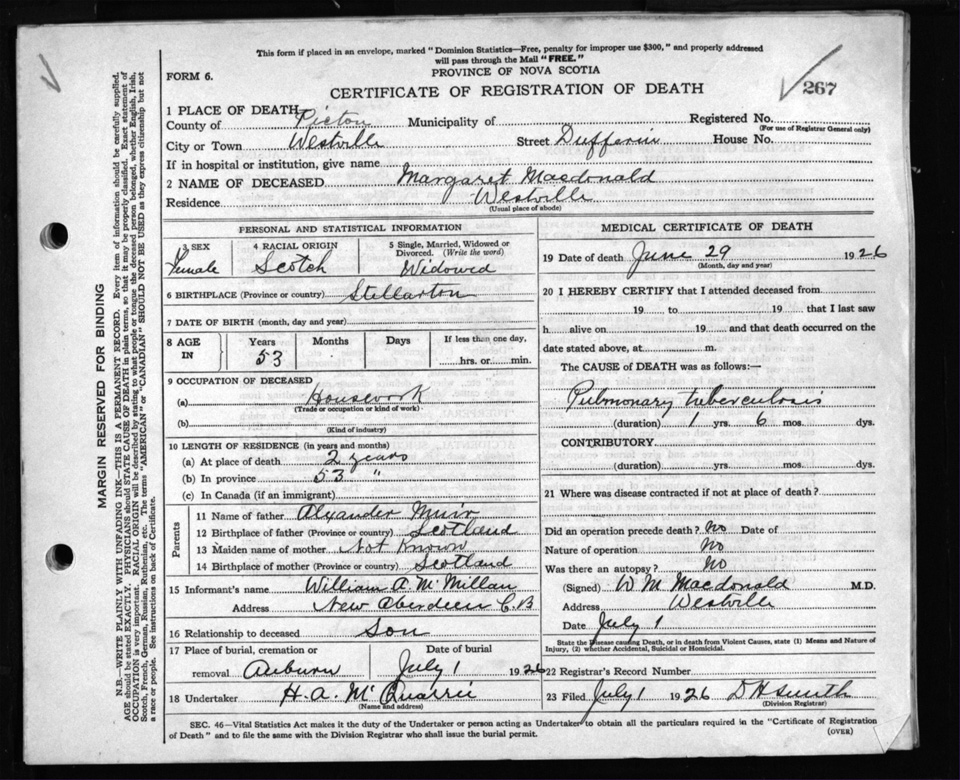 This form if placed in an envelope, marked "Dominion Statistics—Free, penalty for improper use $300," and properly addressed
will pass through the Mail "FREE."
FORM 6.
PROVINCE OF NOVA SCOTIA
CERTIFICATE OF REGISTRATION OF DEATH
267
1 PLACE OF DEATH
County of Pictou Municipality of Registered No.
(For use of Registrar General only)
City or Town Westville Street Dufferin House No.
If in hospital or institution, give name
2 NAME OF DECEASED Margaret Macdonald
Residence Westville
(Usual place of abode)
PERSONAL AND STATISTICAL INFORMATION
3 SEX Female
4 RACIAL ORIGIN Scotch
5 Single, Married, Widowed or Divorced. (Write the word) Widowed
6 BIRTHPLACE (Province or country) Stellarton
7 DATE OF BIRTH (month, day and year)
8 AGE IN Years 53 Months Days If less than one day, hrs. or min.
9 OCCUPATION OF DECEASED
(a) Housework
(Trade or occupation or kind of work)
(b)
(Kind of industry)
10 LENGTH OF RESIDENCE (in years and months)
(a) At place of death 2 years
(b) In province 53 "
(c) In Canada (if an immigrant)
Parents
11 Name of father Alxander Muir
12 Birthplace of father (Province or country) Scotland
13 Maiden name of mother Not Known
14 Birthplace of mother (Province or country) Scotland
15 Informant's name William A McMillan
Address New Aberdeen C.B
16 Relationship to deceased Son
17 Place of burial, cremation or removal Auburn Date of burial July 1 1926
18 Undertaker H.A. McQuarrie
(Name and address)
MEDICAL CERTIFICATE OF DEATH
19 Date of death June 29 1926
(Month, day and year)
20 I HEREBY CERTIFY that I attended deceased from
19 to 19 that I last saw
h alive on 19 and that death occurred on
date stated above, at m.
The CAUSE of DEATH was as follows:—
Pulmonary tuberculosis
(duration) 1 yrs. 6 mos. dys.
CONTRIBUTORY
(duration) yrs. mos. dys.
21 Where was disease contracted if not at place of death?
Did an operation precede death? No Date of
Nature of operation No
Was there an autopsy? No
(Signed) W M Macdonald M.D.
Address Westville
Date July 1
State the Disease causing Death, or in death from Violent Causes, state (1) Means and Nature of
Injury, (2) whether Accidental, Suicidal or Homicidal.
22 Registrar's Record Number
23 Filed July 1 1926 D H Smith
(Division Registrar)
SEC. 46—Vital Statistics Act makes it the duty of the Undertaker or person acting as Undertaker to obtain all the particulars required in the "Certificate of Registration
of Death" and to file the same with the Division Registrar who shall issue the burial permit.
(OVER)
MARGIN RESERVED FOR BINDING
N.B.—WRITE PLAINLY WITH UNFADING INK—THIS IS A PERMANENT RECORD. Every item of information should be carefully supplied.
AGE should be stated EXACTLY. PHYSICIANS should STATE CAUSE OF DEATH in plain terms, so that it may be properly classified. Exact statement of
OCCUPATION is very important. RACIAL ORIGIN will be described by stating to what people or tongue the deceased person belonged, whether English, Irish,
Scotch, French, German, Russian, Ruthenian, etc. The terms "AMERICAN" or "CANADIAN" SHOULD NOT BE USED as they express citizenship but not
a race or people. See instructions on back of Certificate.